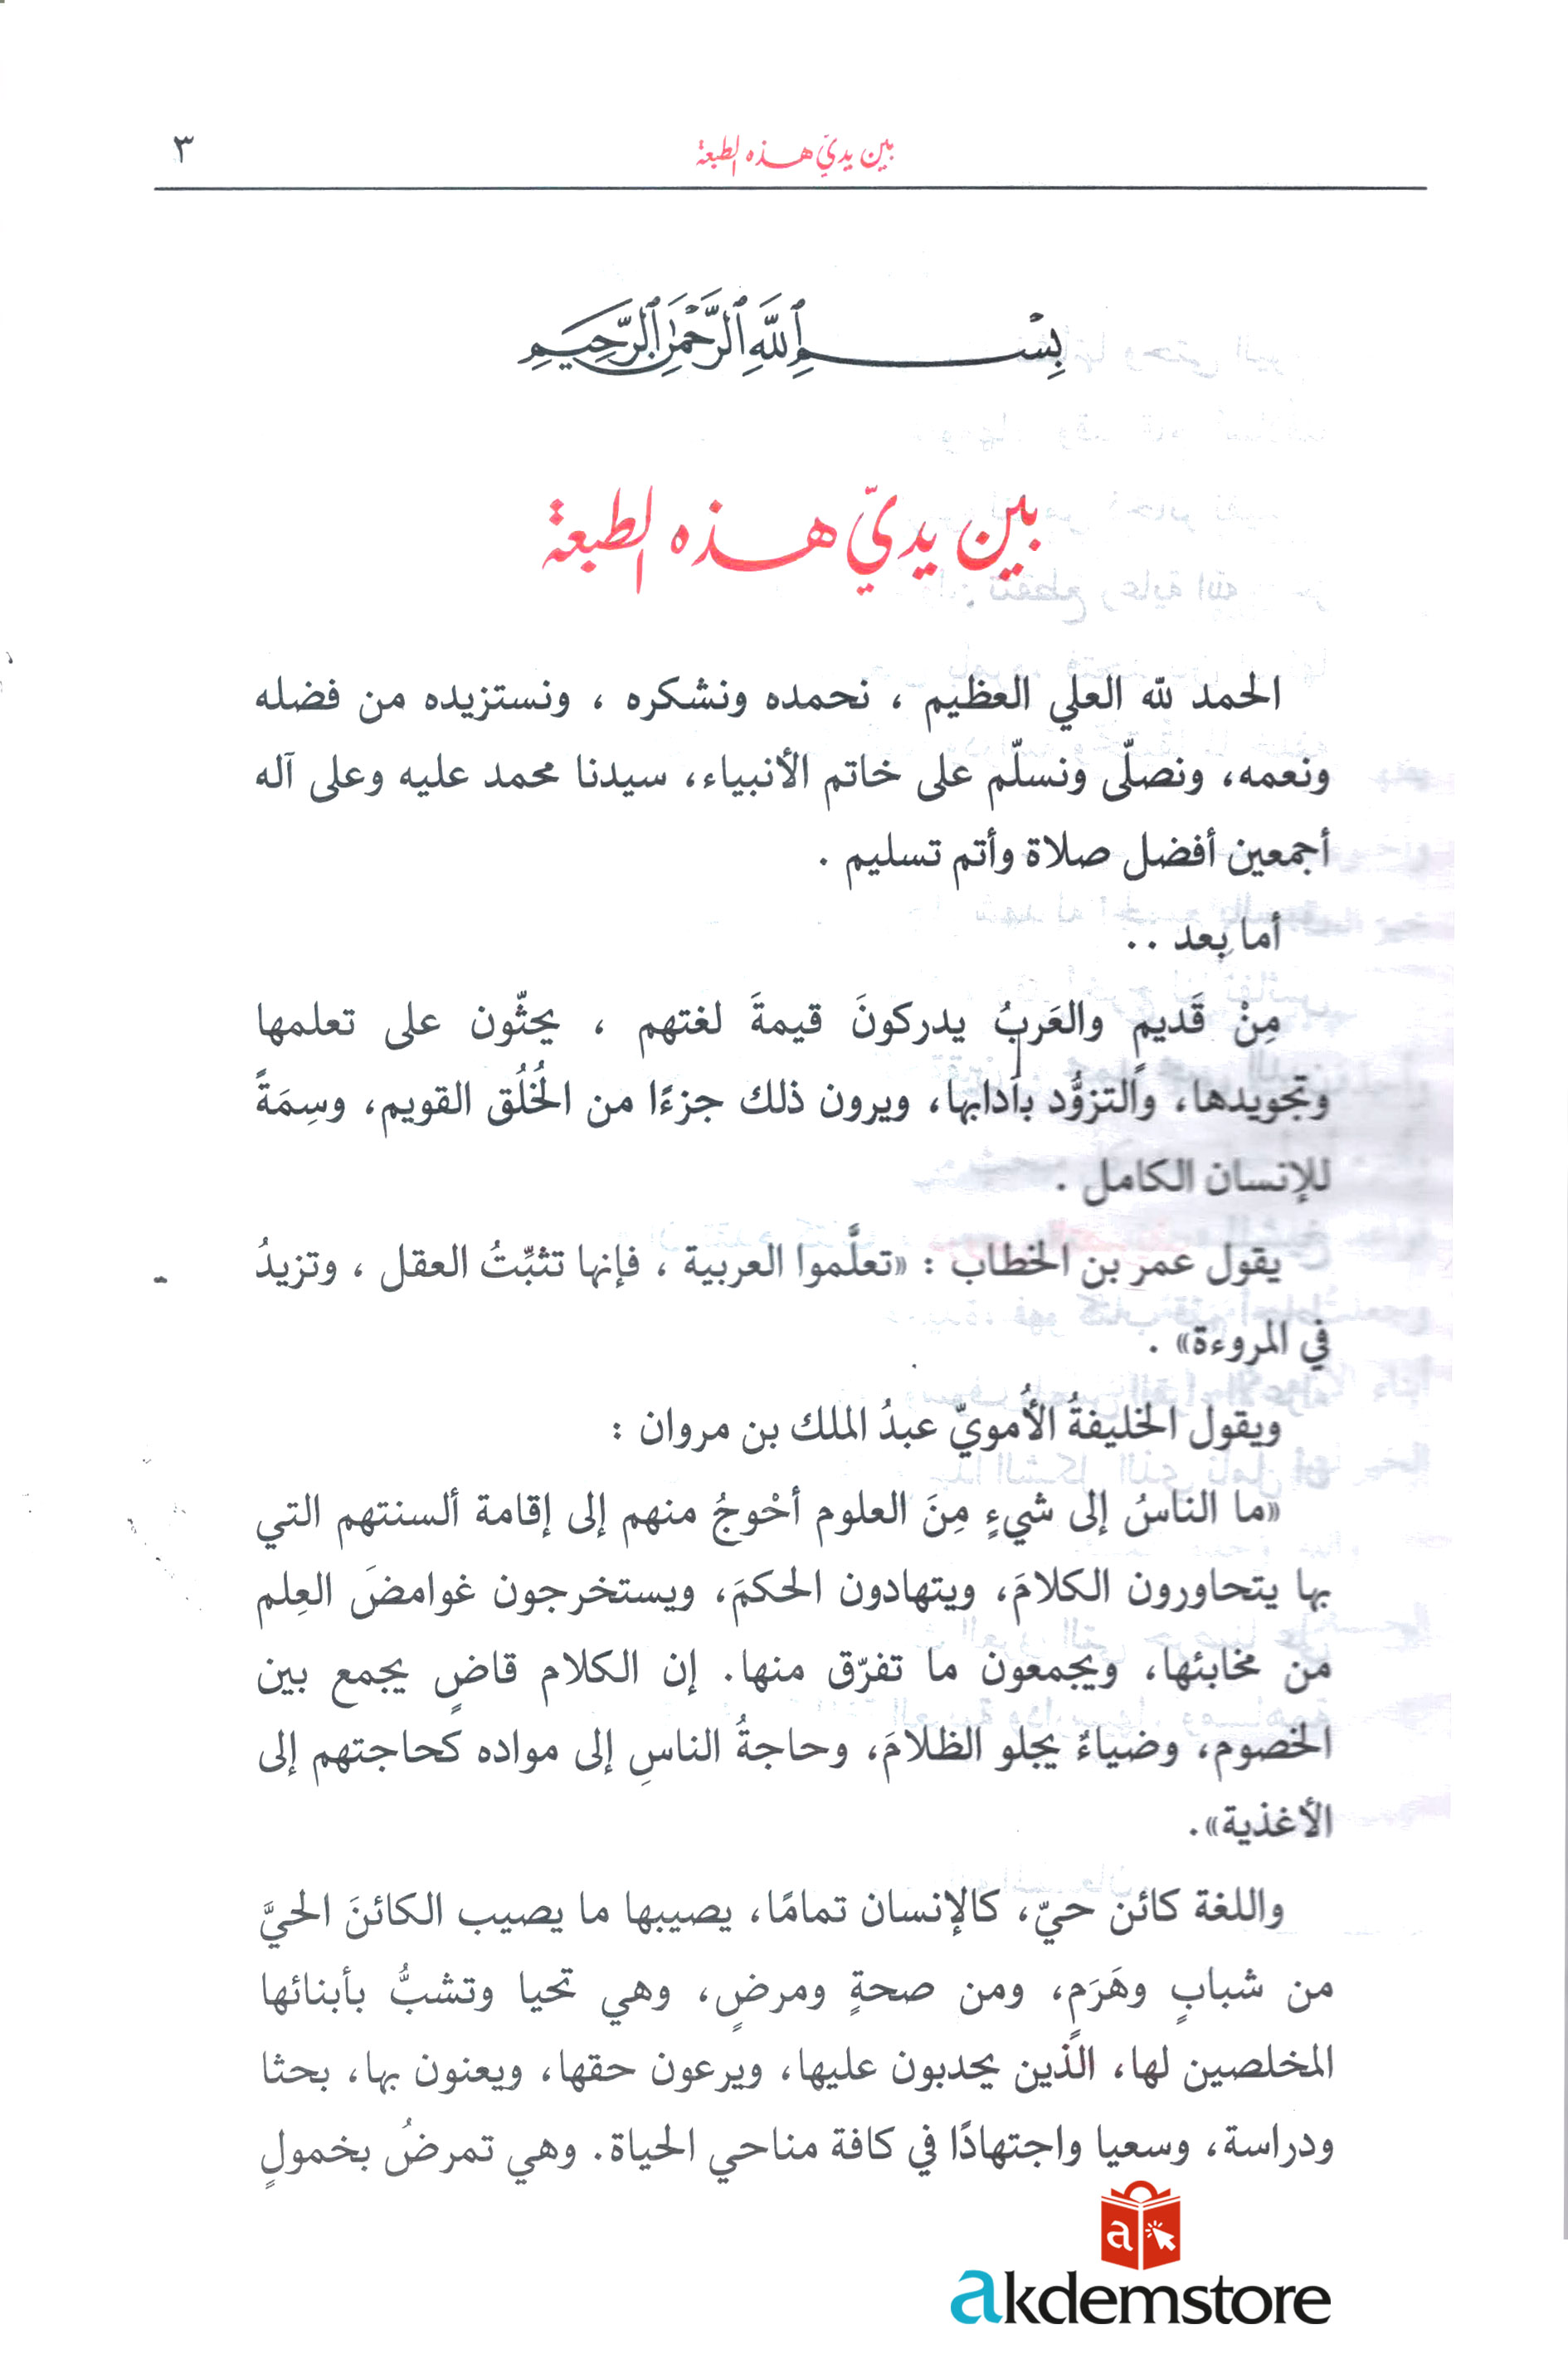 بين يديّ هذه الطبعة
٣
بِسْمِ ٱللَّهِ ٱلرَّحْمَٰنِ ٱلرَّحِيمِ
بين يديّ هذه الطبعة
الحمد لله العلي العظيم ، نحمده ونشكره ، ونستزيده من فضله
ونعمه، ونصلّى ونسلّم على خاتم الأنبياء، سيدنا محمد عليه وعلى آله
أجمعين أفضل صلاة وأتم تسليم .
أما بعد ..
مِنْ قَديمٍ والعَربُ يدركونَ قيمةَ لغتهم ، يحثّون على تعلمها
وتجويدها، والتزوُّد بآدابها، ويرون ذلك جزءًا من الخُلُق القويم، وسِمَةً
للإنسان الكامل .
يقول عمر بن الخطاب : «تعلَّموا العربية ، فإنها تثبِّتُ العقل ، وتزيدُ
في المروءة» .
ويقول الخليفةُ الأُمويّ عبدُ الملك بن مروان :
«ما الناسُ إلى شيءٍ مِنَ العلوم أحْوجُ منهم إلى إقامة ألسنتهم التي
بها يتحاورون الكلامَ، ويتهادون الحكمَ، ويستخرجون غوامضَ العِلم
من مخابئها، ويجمعون ما تفرّق منها. إن الكلام قاضٍ يجمع بين
الخصوم، وضياءٌ يجلو الظلامَ، وحاجةُ الناسِ إلى مواده كحاجتهم إلى
الأغذية».
واللغة كائن حيّ، كالإنسان تمامًا، يصيبها ما يصيب الكائنَ الحيَّ
من شبابٍ وهَرَمٍ، ومن صحةٍ ومرضٍ، وهي تحيا وتشبُّ بأبنائها
المخلصين لها، الذين يحدبون عليها، ويرعون حقها، ويعنون بها، بحثا
ودراسة، وسعيا واجتهادًا في كافة مناحي الحياة. وهي تمرضُ بخمولٍ
a
akdemstore